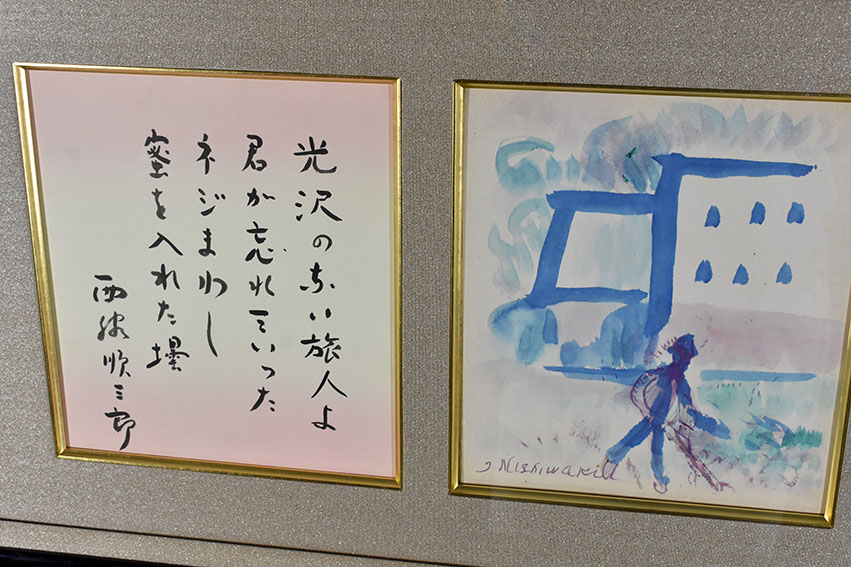 光沢のない旅人よ
君が忘れていった
ネジまわし
蜜を入れた壜
西脇順三郎
J Nishiwaki